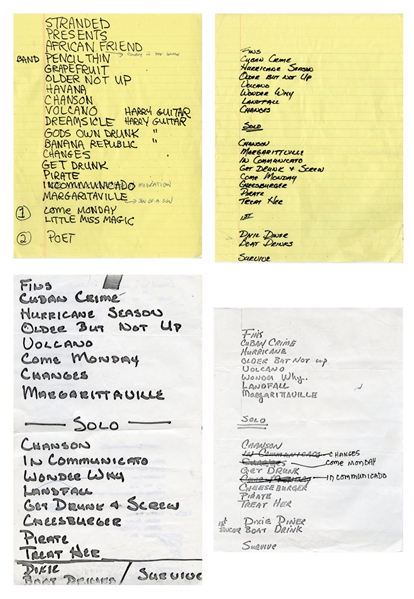 STRANDED
PRESENTS
AFRICAN FRIEND
BAND PENCIL THIN
GRAPEFRUIT
OLDER NOT UP
HAVANA
CHANSON
VOLCANO HARRY GUITAR
DREAMSICLE HARRY GUITAR
GODS OWN DRUNK "
BANANA REPUBLIC "
CHANGES
GET DRUNK
PIRATE
INCOMMUNICADO MIGRATION
MARGARITAVILLE
SON OF A SON
1 COME MONDAY
LITTLE MISS MAGIC
2 POET
FINS
CUBAN CRIME
HURRICANE SEASON
OLDER BUT NOT UP
VOLCANO
WONDER WHY
LANDFALL
CHANGES
SOLO
CHANSON
MARGARITTVILLE
IN COMMUNICATO
GET DRUNK & SCREW
COME MONDAY
CHEESBURGER
PIRATE
TREAT HER
DIXIE DINER
BOAT DRINKS
SURVIVE
FINS
CUBAN CRIME
HURRICANE SEASON
OLDER BUT NOT UP
VOLCANO
COME MONDAY
CHANGES
MARGARITTAVILLE
SOLO
CHANSON
IN COMMUNICATO
WONDER WHY
LANDFALL
GET DRUNK & SCREW
CHEESBURGER
PIRATE
TREAT HER
DIXIE
BOAT DRINKS / SURVIVE
FINS
CUBAN CRIME
HURRICANE
OLDER BUT NOT UP
VOLCANO
WONDER WHY..
LANDFALL
MARGARITAVILLE
SOLO
CHANSON
IN COMMUNICADO CHANGES
CHANGES COME MONDAY
GET DRUNK
COME MONDAY IN COMMUNICADO
CHEESEBURGER
PIRATE
TREAT HER
1ST DIXIE DINER
ENCORE BOAT DRINK
SURVIVE